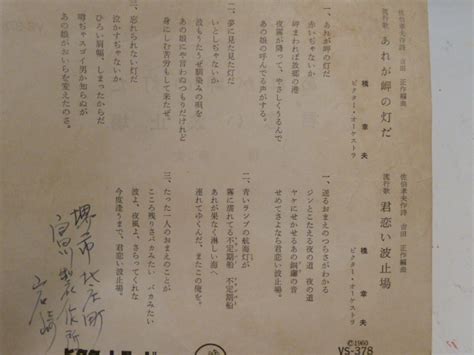 佐伯孝夫作詩 吉田 正作編曲
流行歌 君恋い波止場
橋 幸夫
ビクター・オーケストラ
一、送るおまえのつらさがわかる
ジンとこたえる夜の道 夜の道
ヤケにせかせるあの銅鑼の音
せめてさよなら君恋い波止場
二、青いランプの航海灯が
霧に濡れてる不定期船 不定期船
あれが果なく淋しい海へ
連れてゆくんだ、また この俺を。
三、たった一人のおまえのことが
こころ残りさバカみたい バカみたい
波よ、夜風よ、さらってくれな
今度逢うまで、君恋い波止場。
佐伯孝夫作詩 吉田 正作編曲
流行歌 あれが岬の灯だ
橋 幸夫
ビクター・オーケストラ
一、あれが岬の灯だ
赤いじゃないか
岬まわれば故郷の港
夜霧が降って、やさしくうるんで
あの娘の呼んでる声がする。
二、夢に見た見た灯だ
いとしじゃないか
波もうたうぜ馴染みの唄を
あの娘にや言わぬつもりだけれど
身にしむ苦労もして来たぜ。
三、忘れられない灯だ
泣かすじゃないか
ひろい肩幅、しまったからだ
嘸ちゃスゴイ男か知らぬが
あの娘がおいらを変えたのさ。
堺市
©1960
VS-378